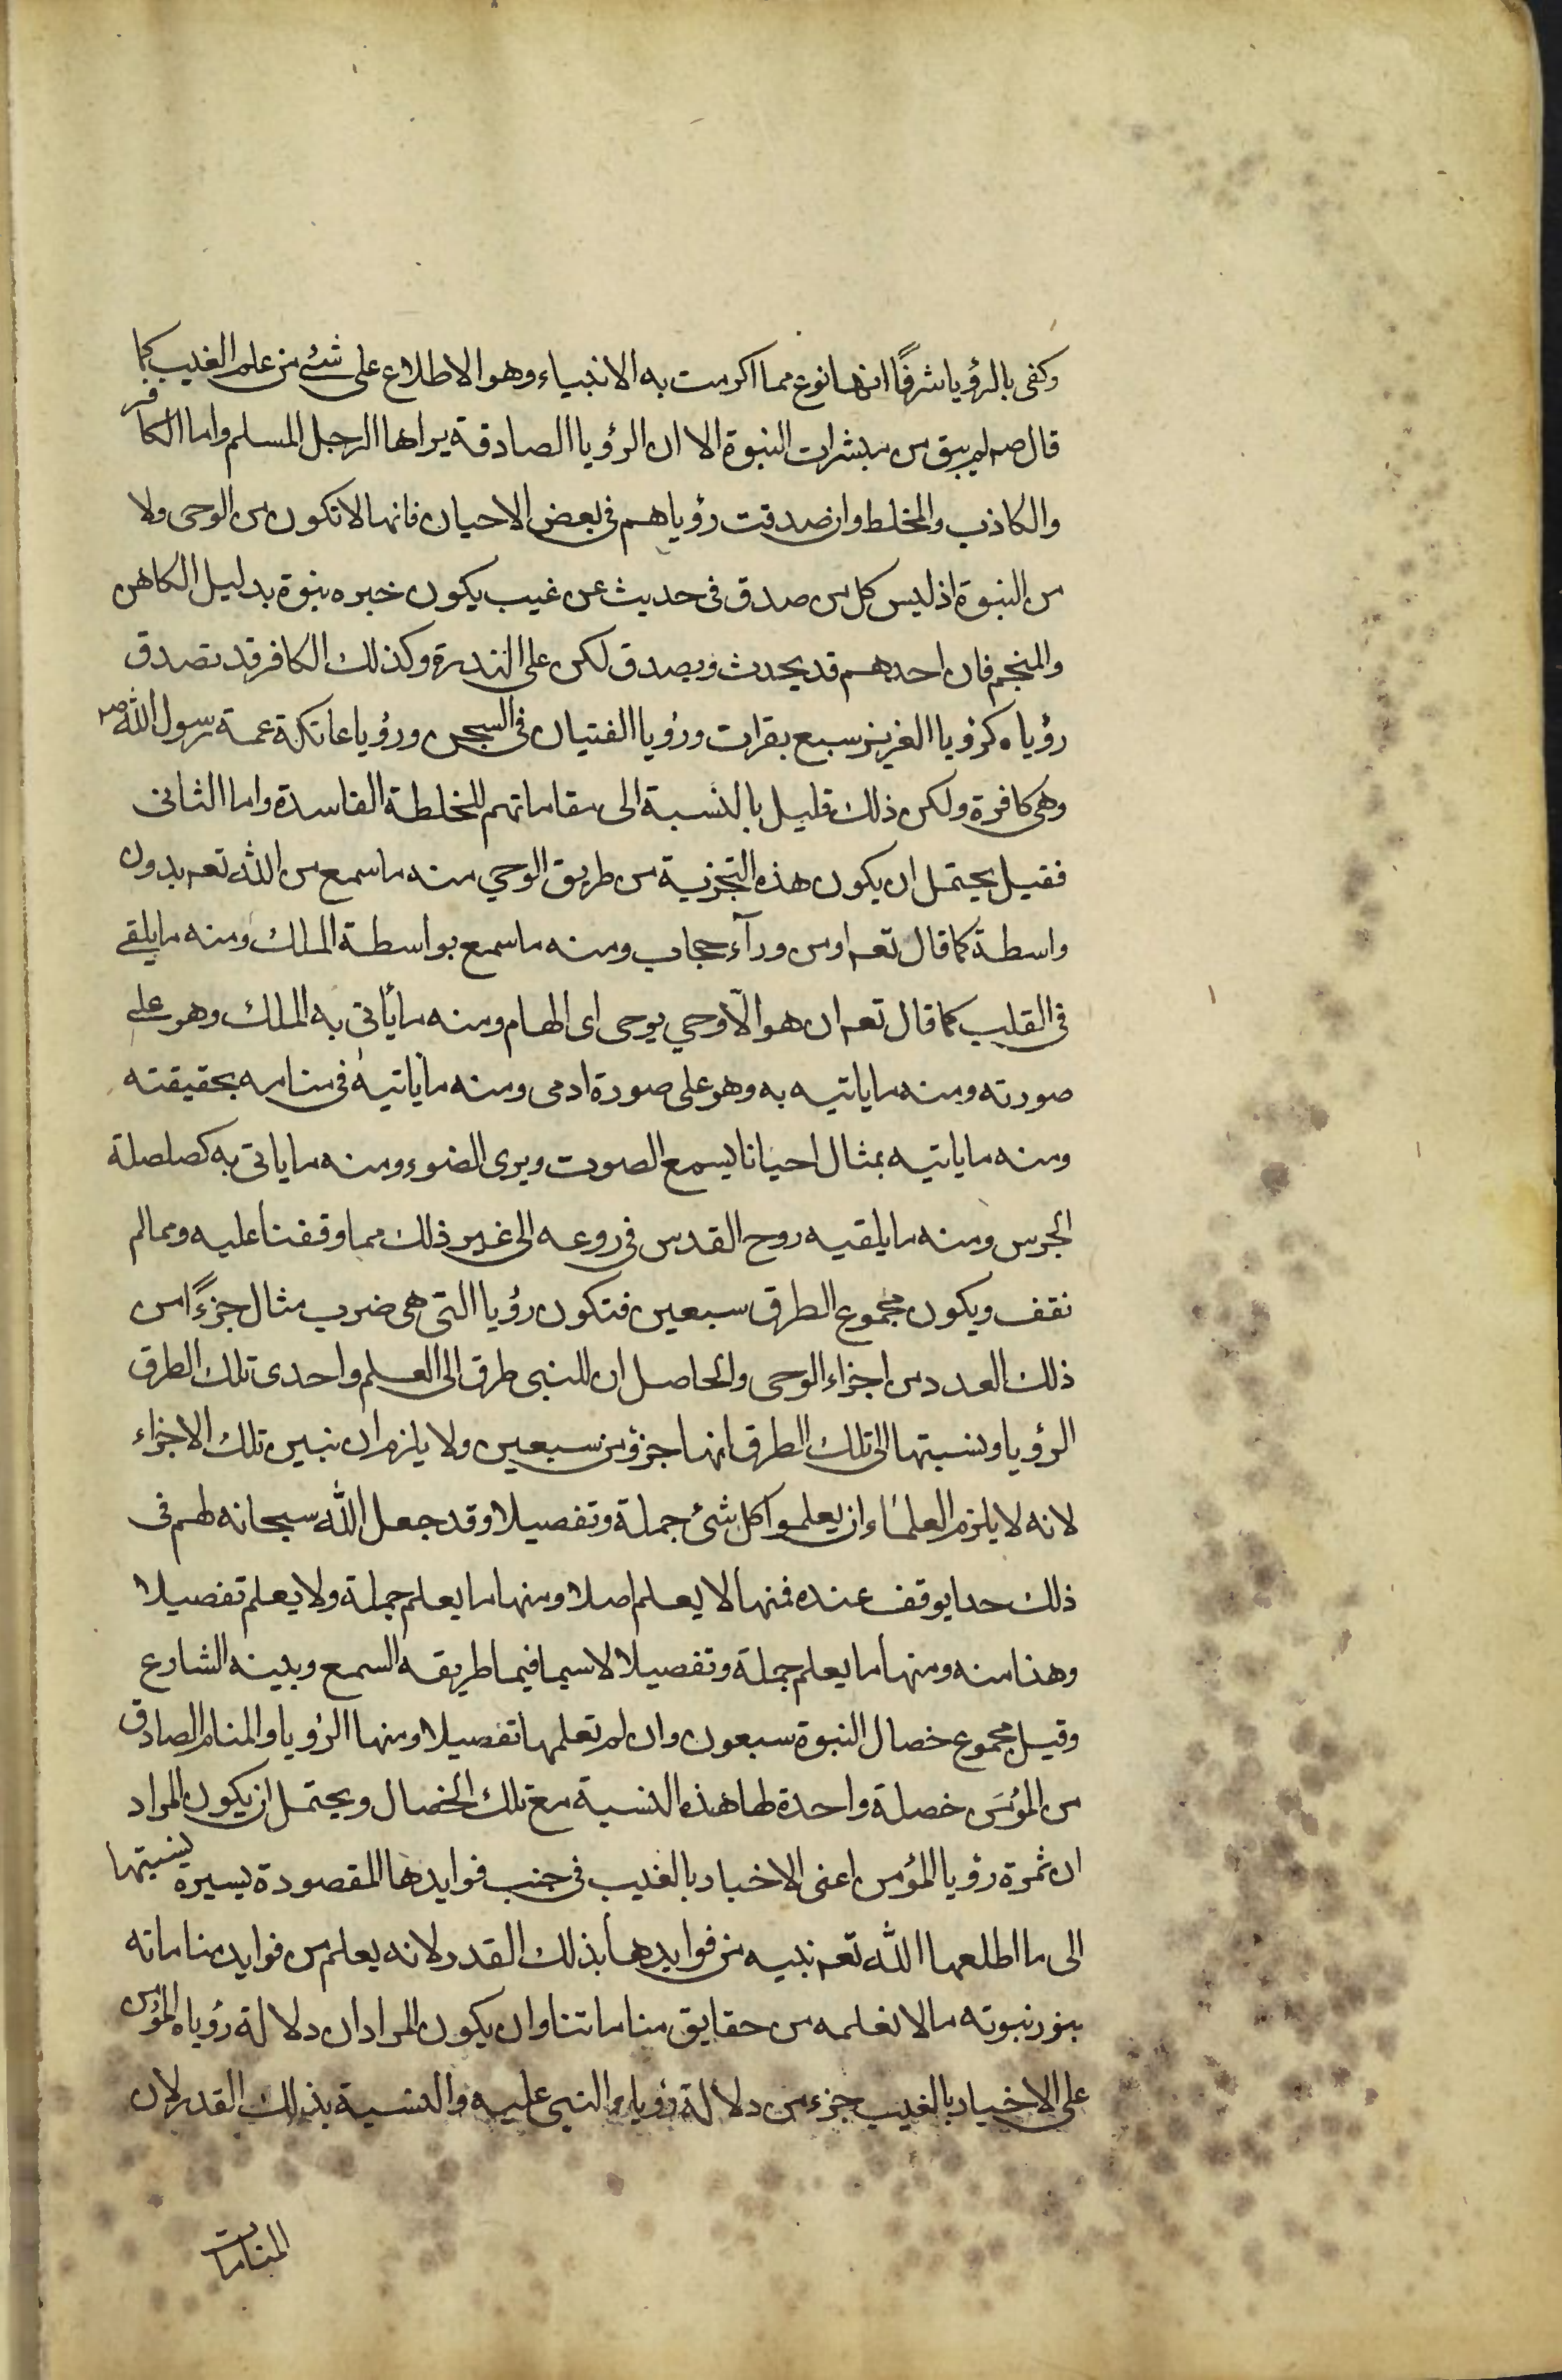 وكفى بالرؤيا شرفًا انها نوع مما اكرمت به الانبياء وهو الاطلاع على شئ من علم الغيب كما
قال صم لم يبق من مبشرات النبوة الا ان الرؤيا الصادقة يراها الرجل المسلم واما الكافر
والكاذب والمخلط وان صدقت رؤياهم فى بعض الاحيان فانها لا تكون من الوحى ولا
من النبوة اذ ليس كل من صدق فى حديث عن غيب يكون خبره نبوة بدليل الكاهن
والمنجم فان احدهم قد يحدث ويصدق لكن على الندرة وكذلك الكافر قد تصدق
رؤياه كرؤيا العزيز سبع بقرات ورؤيا الفتيان فى السجن ورؤيا عاتكة عمة رسول الله صم
وهى كافرة ولكن ذلك قليل بالنسبة الى مقاماتهم المخلطة الفاسدة واما الثانى
فقيل يحتمل ان يكون هذه التجزية من طريق الوحي منه ما سمع من الله تعم بدون
واسطة كما قال تعم او من ورآء حجاب ومنه ما سمع بواسطة الملك ومنه ما يلقى
فى القلب كما قال تعم ان هو الّا وحي يوحى اى الهام ومنه ما يأتى به الملك وهو على
صورته ومنه ما ياتيه به وهو على صورة ادمى ومنه ما ياتيه فى منامه بحقيقته
ومنه ما ياتيه بمثال احيانا يسمع الصوت ويرى الضوء ومنه ما ياتى به كصلصلة
الجرس ومنه ما يلقيه روح القدس فى روعه الى غير ذلك مما وقفنا عليه ومما لم
نقف ويكون مجموع الطرق سبعين فتكون رؤيا التى هى ضرب مثال جزءًا من
ذلك العدد من اجزاء الوحى والحاصل ان للنبى طرق الى العلم واحدى تلك الطرق
الرؤيا ونسبتها الى تلك الطرق انها جزؤ من سبعين ولا يلزم ان نبين تلك الاجزاء
لانه لا يلزم العلماء ان يعلموا كل شئ جملة وتفصيلا وقد جعل الله سبحانه لهم فى
ذلك حدا يوقف عنده فمنها لا يعلم اصلا ومنها ما يعلم جملة ولا يعلم تفصيلا
وهذا منه ومنها ما يعلم جملة وتفصيلا لا سيما فيما طريقه السمع وبينه الشارع
وقيل مجموع خصال النبوة سبعون وان لم تعلمها تفصيلا ومنها الرؤيا والمنام الصادق
من المؤمن خصلة واحدة لها هذه النسبة مع تلك الخصال ويحتمل ان يكون المراد
ان ثمرة رؤيا المؤمن اعنى الاخبار بالغيب فى جنب فوايدها المقصودة يسيرة نسبتها
الى ما اطلعها الله تعم نبيه من فوايدها بذلك القدر لانه يعلم من فوايد مناماته
بنور نبوته ما لا نعلمه من حقايق مناماتنا وان يكون المراد ان دلالة رؤياه المؤمن
على الاخبار بالغيب جزء من دلالة رؤياء النبى عليه والنسبة بذلك القدر لان
المنامات